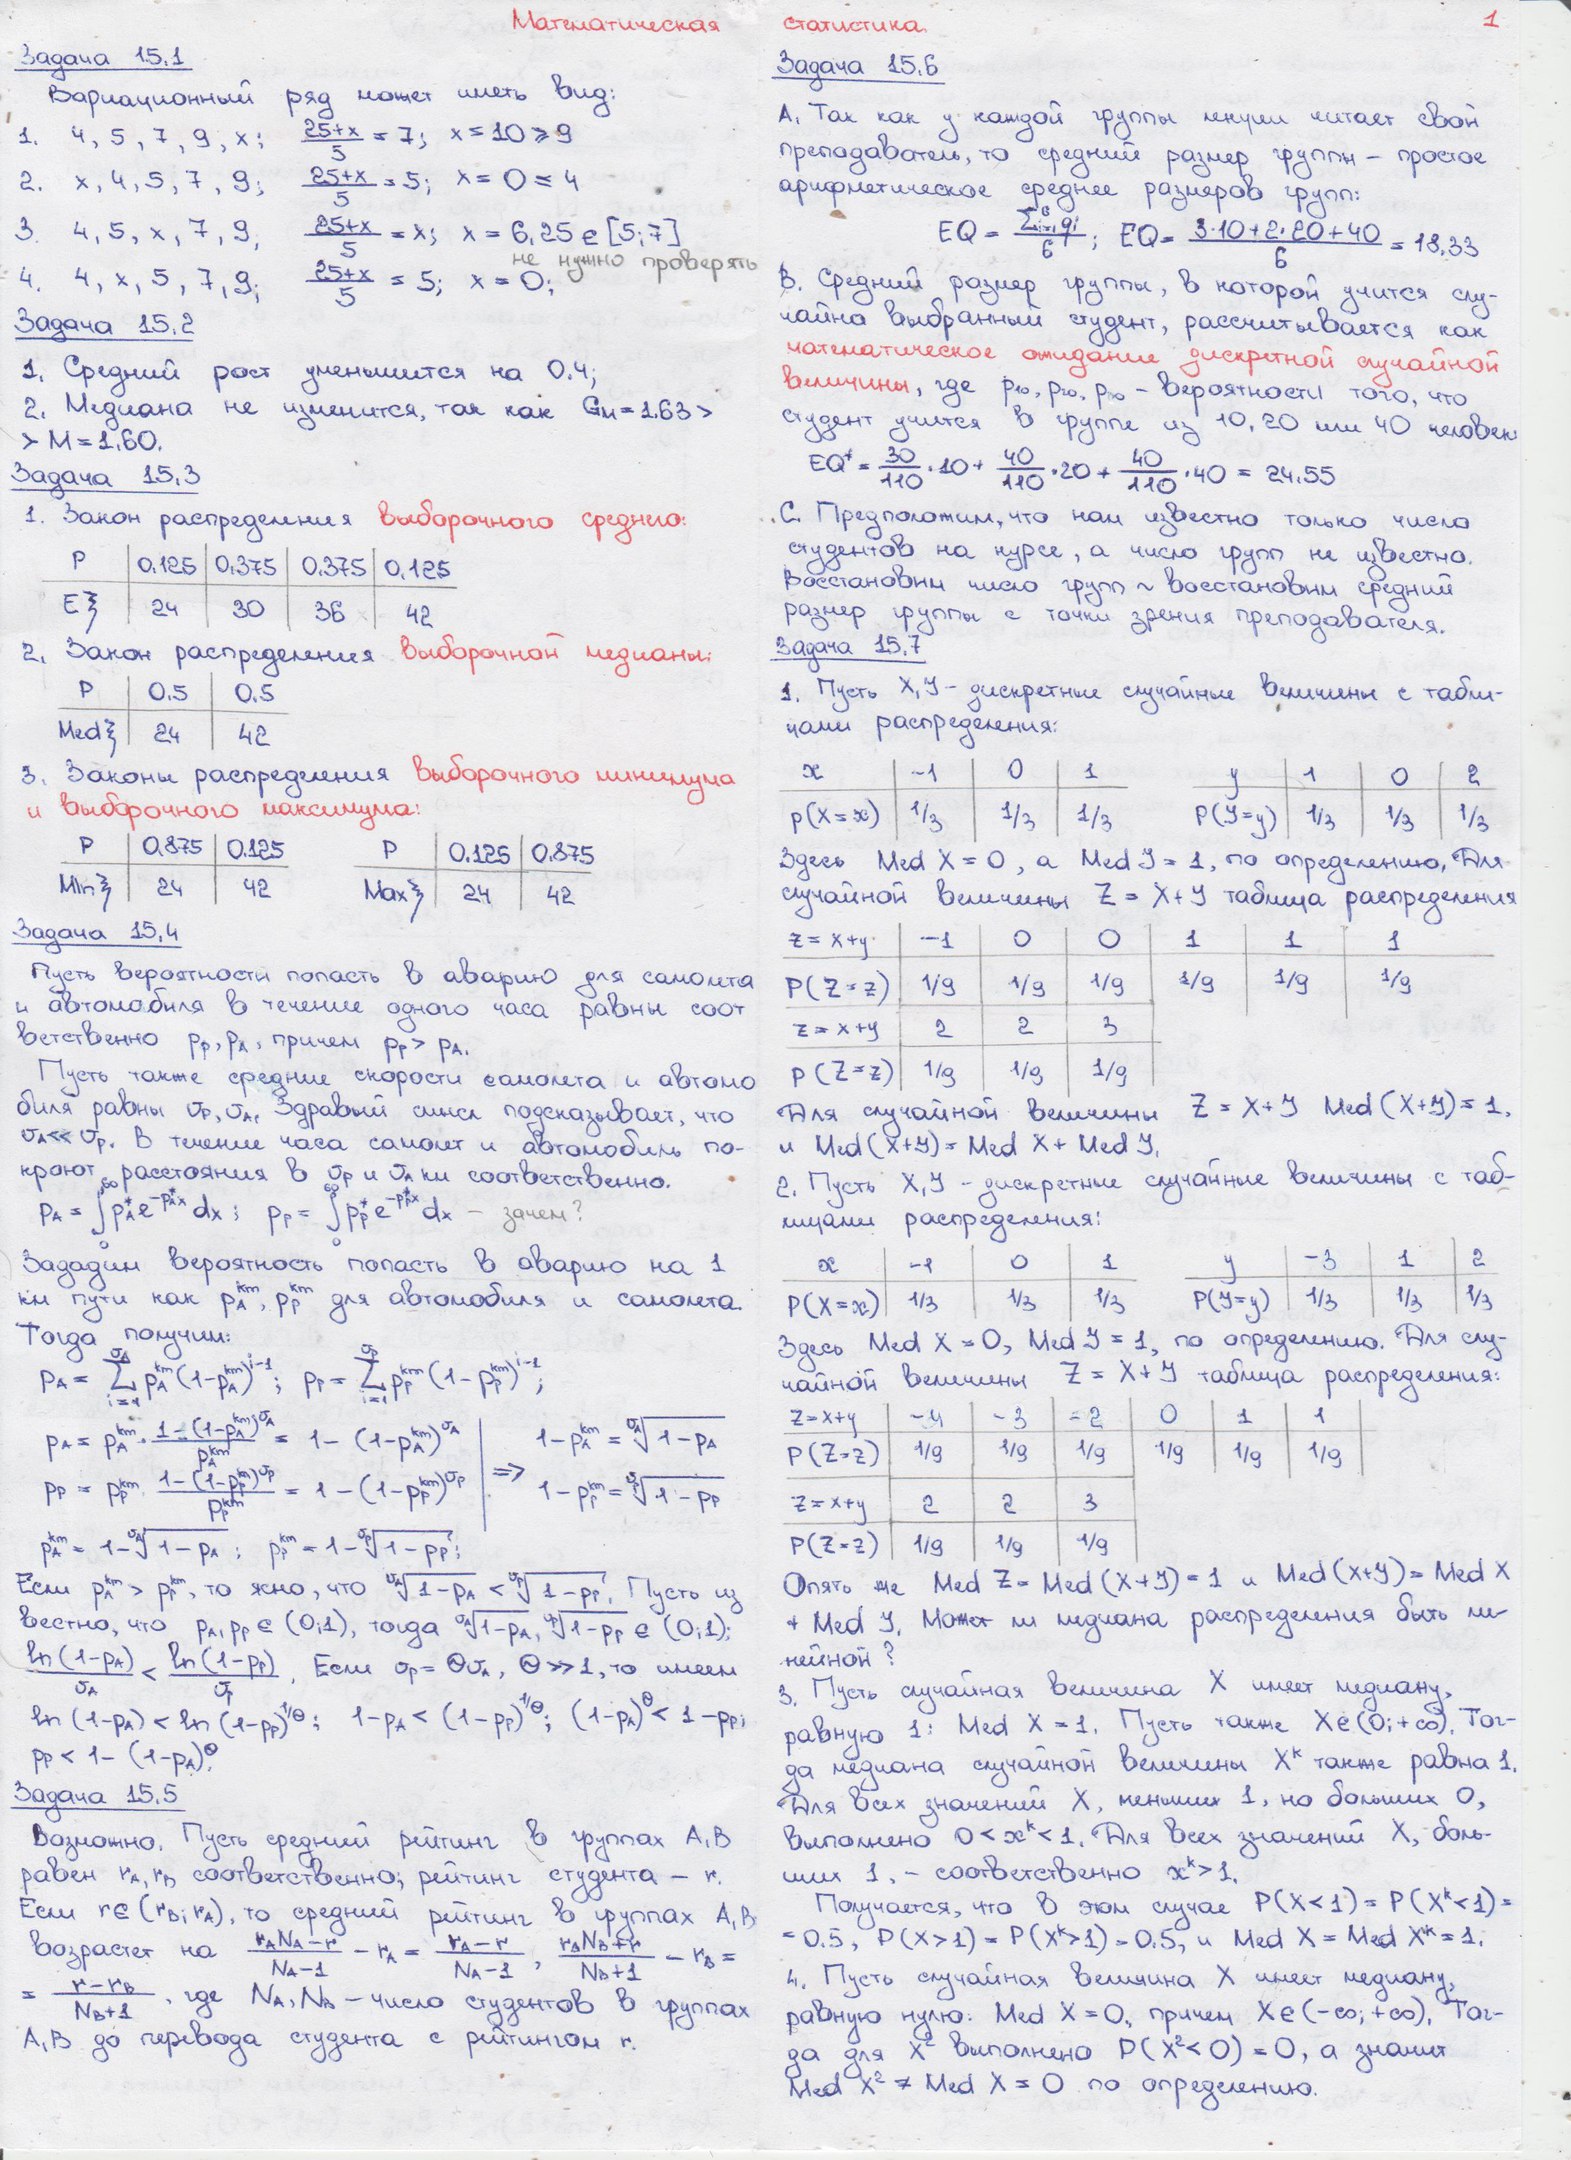 Математическая статистика.
1
Задача 15.1
Вариационный ряд может иметь вид:
1. 4, 5, 7, 9, x; (25+x)/5 = 7; x = 10 ≥ 9
2. x, 4, 5, 7, 9; (25+x)/5 = 5; x = 0 ≤ 4
3. 4, 5, x, 7, 9; (25+x)/5 = x; x = 6.25 ∈ [5;7]
не нужно проверять
4. 4, x, 5, 7, 9; (25+x)/5 = 5; x = 0;
Задача 15.2
1. Средний рост уменьшится на 0.4;
2. Медиана не изменится, так как Gм = 1.63 >
> M = 1.60.
Задача 15.3
1. Закон распределения выборочного среднего:
P | 0.125 | 0.375 | 0.375 | 0.125
Eξ | 24 | 30 | 36 | 42
2. Закон распределения выборочной медианы:
P | 0.5 | 0.5
Medξ | 24 | 42
3. Законы распределения выборочного минимума
и выборочного максимума:
P | 0.875 | 0.125 P | 0.125 | 0.875
Minξ | 24 | 42 Maxξ | 24 | 42
Задача 15.4
Пусть вероятности попасть в аварию для самолета
и автомобиля в течение одного часа равны соот
ветственно pP, pA, причем pP > pA.
Пусть также средние скорости самолета и автомо
биля равны υP, υA. Здравый смысл подсказывает, что
υA << υP. В течение часа самолет и автомобиль по-
кроют расстояния в υP и υA км соответственно.
pA = ∫₀^∞ pA* e^(-pA* x) dx; pP = ∫₀^∞ pP* e^(-pP* x) dx – зачем?
Зададим вероятность попасть в аварию на 1
км пути как pA^km, pP^km для автомобиля и самолета.
Тогда получим:
pA = Σ_(i=1)^(υA) pA^km (1-pA^km)^(i-1); pP = Σ_(i=1)^(υP) pP^km (1-pP^km)^(i-1);
pA = pA^km · (1-(1-pA^km)^υA)/pA^km = 1 - (1-pA^km)^υA | => 1-pA^km = ^υA√(1-pA)
pP = pP^km · (1-(1-pP^km)^υP)/pP^km = 1 - (1-pP^km)^υP | 1-pP^km = ^υP√(1-pP)
pA^km = 1 - ^υA√(1-pA); pP^km = 1 - ^υP√(1-pP);
Если pA^km > pP^km, то ясно, что ^υA√(1-pA) < ^υP√(1-pP). Пусть из
вестно, что pA, pP ∈ (0;1), тогда ^υA√(1-pA), ^υP√(1-pP) ∈ (0;1);
ln(1-pA)/υA < ln(1-pP)/υP. Если υP = ΘυA, Θ >> 1, то имеем
ln(1-pA) < ln(1-pP)^(1/Θ); 1-pA < (1-pP)^(1/Θ); (1-pA)^Θ < 1-pP;
pP < 1 - (1-pA)^Θ.
Задача 15.5
Возможно. Пусть средний рейтинг в группах A, B
равен rA, rB соответственно; рейтинг студента – r.
Если r ∈ (rB; rA), то средний рейтинг в группах A, B
возрастет на (rANA-r)/(NA-1) - rA = (rA-r)/(NA-1), (rANB+r)/(NB+1) - rB =
= (r-rB)/(NB+1), где NA, NB – число студентов в группах
A, B до перевода студента с рейтингом r.
Задача 15.6
A. Так как у каждой группы лекции читает свой
преподаватель, то средний размер группы – простое
арифметическое среднее размеров групп:
EQ = (Σ_(i=1)^6 qi)/6; EQ = (3·10+2·20+40)/6 = 18.33
B. Средний размер группы, в которой учится слу-
чайно выбранный студент, рассчитывается как
математическое ожидание дискретной случайной
величины, где p10, p20, p40 – вероятности того, что
студент учится в группе из 10, 20 или 40 человек
EQ* = 30/110 · 10 + 40/110 · 20 + 40/110 · 40 = 24.55
C. Предположим, что нам известно только число
студентов на курсе, а число групп не известно.
Восстановим число групп ~ восстановим средний
размер группы с точки зрения преподавателя.
Задача 15.7
1. Пусть X, Y – дискретные случайные величины с табли-
цами распределения:
x | -1 | 0 | 1 y | 1 | 0 | 2
P(X=x) | 1/3 | 1/3 | 1/3 P(Y=y) | 1/3 | 1/3 | 1/3
Здесь Med X = 0, а Med Y = 1, по определению. Для
случайной величины Z = X+Y таблица распределения
z = x+y | -1 | 0 | 0 | 1 | 1 | 1
P(Z=z) | 1/9 | 1/9 | 1/9 | 1/9 | 1/9 | 1/9
z = x+y | 2 | 2 | 3
P(Z=z) | 1/9 | 1/9 | 1/9
Для случайной величины Z = X+Y Med(X+Y) = 1.
и Med(X+Y) = Med X + Med Y.
2. Пусть X, Y – дискретные случайные величины с таб-
лицами распределения:
x | -1 | 0 | 1 y | -3 | 1 | 2
P(X=x) | 1/3 | 1/3 | 1/3 P(Y=y) | 1/3 | 1/3 | 1/3
Здесь Med X = 0, Med Y = 1, по определению. Для слу-
чайной величины Z = X+Y таблица распределения:
Z=x+y | -4 | -3 | -2 | 0 | 1 | 1
P(Z=z) | 1/9 | 1/9 | 1/9 | 1/9 | 1/9 | 1/9
Z=x+y | 2 | 2 | 3
P(Z=z) | 1/9 | 1/9 | 1/9
Опять же Med Z = Med(X+Y) = 1 и Med(X+Y) = Med X
+ Med Y. Может ли медиана распределения быть ли-
нейной?
3. Пусть случайная величина X имеет медиану,
равную 1: Med X = 1. Пусть также X ∈ (0; +∞). Тог-
да медиана случайной величины X^k также равна 1.
Для всех значений X, меньших 1, но больших 0,
выполнено 0 < x^k < 1. Для всех значений X, боль-
ших 1, – соответственно x^k > 1.
Получается, что в этом случае P(X<1) = P(X^k<1) =
= 0.5, P(X>1) = P(X^k>1) = 0.5, и Med X = Med X^k = 1.
4. Пусть случайная величина X имеет медиану,
равную нулю: Med X = 0, причем X ∈ (-∞; +∞). Тог-
да для X² выполнено P(X²<0) = 0, а значит
Med X² ≠ Med X = 0 по определению.